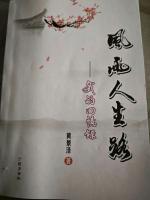 風雨人生路
——我的回憶錄
黄景活 著